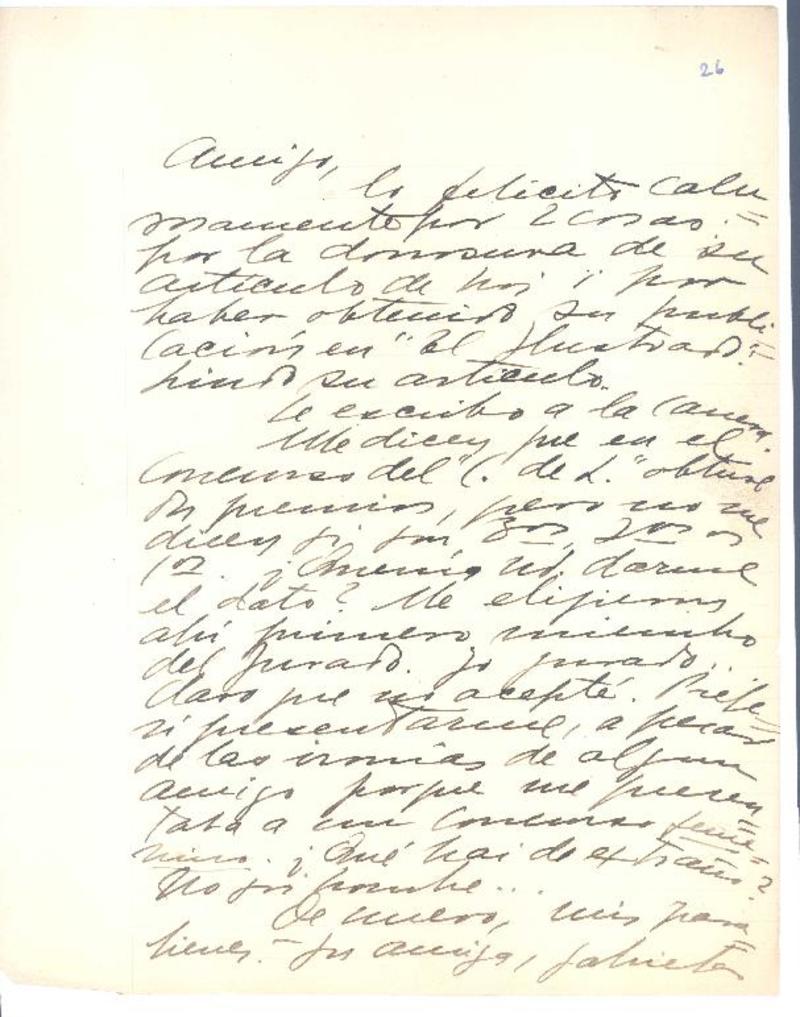 26
Amigo,
lo felicito calu
rosamente por 2 cosas =
por la donosura de su
artículo de hoi i por
haber obtenido su publi
cación en "El Ilustrado".=
lindo su artículo.
Le escribo a la carrera.
Me dicen que en el
Concurso del "C. de L." obtuve
dos premios, pero no me
dicen si son 3os, 2os os
1os. ¿ no darme
el dato? Me elijieron
ahí primero miembro
del Jurado. Yo jurado...
Claro que no acepté. Prefe=
rí presentarme, a pesar
de las ironías de algun
amigo porque me presen=
taba a un Concurso feme=
nino. ¿Qué hai de extraño?
No soi hombre...
De nuevo, mis para
bienes.= Su amiga, Gabriela